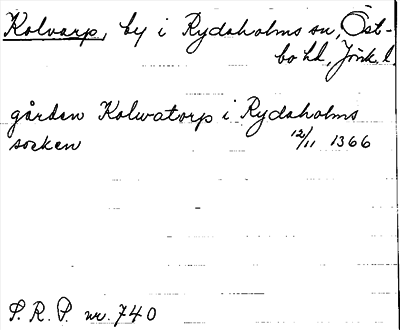 Kolvarp, by i Rydaholms sn, Öst-
bo hd, Jönk. l.
gården Kolwatorp i Rydaholms
socken 12/11 1366
S. R. P. nr. 740